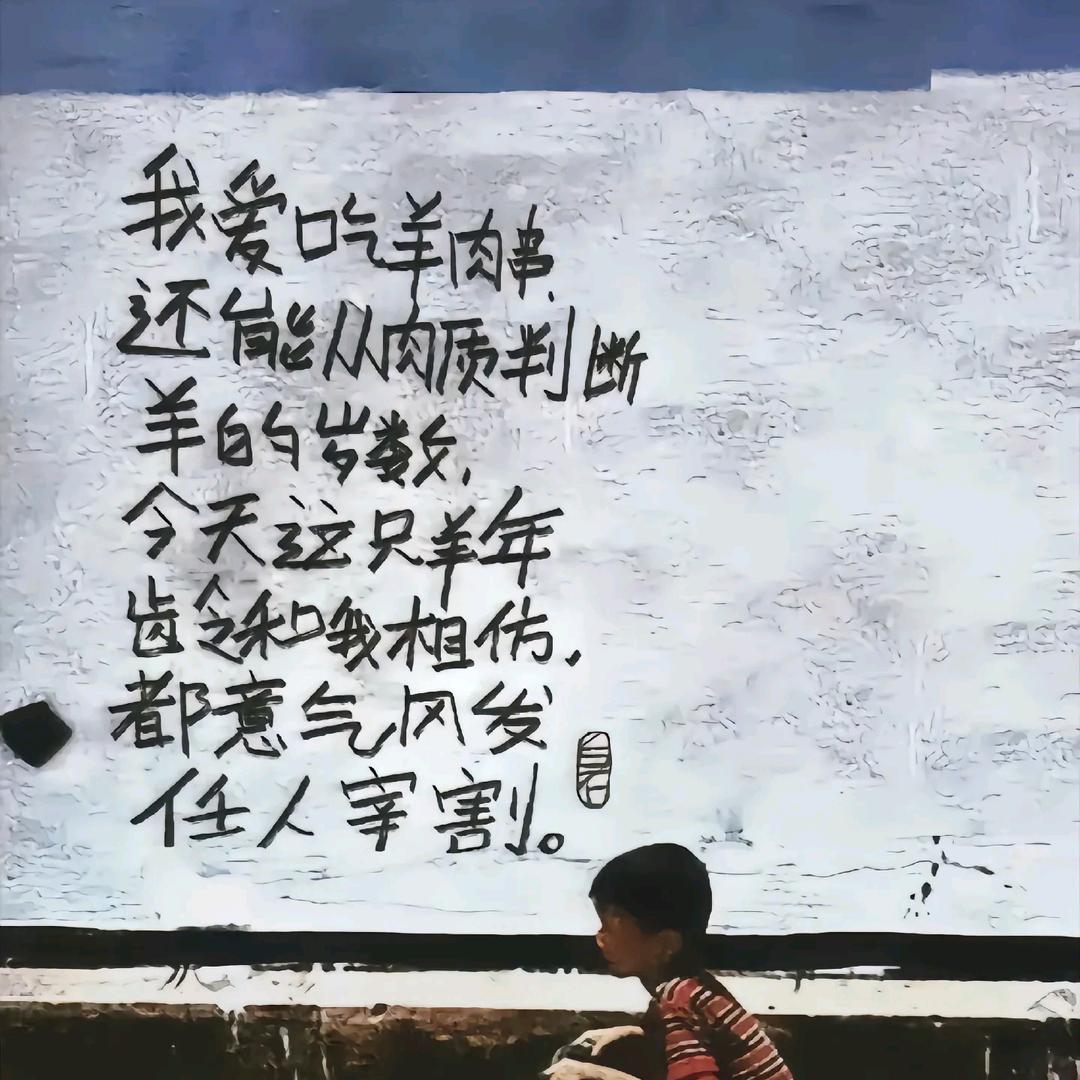 我爱吃羊肉串,
还能从肉质判断
羊的岁数,
今天这只羊年
齿令和哦相仿,
都意气风发
任人宰割。